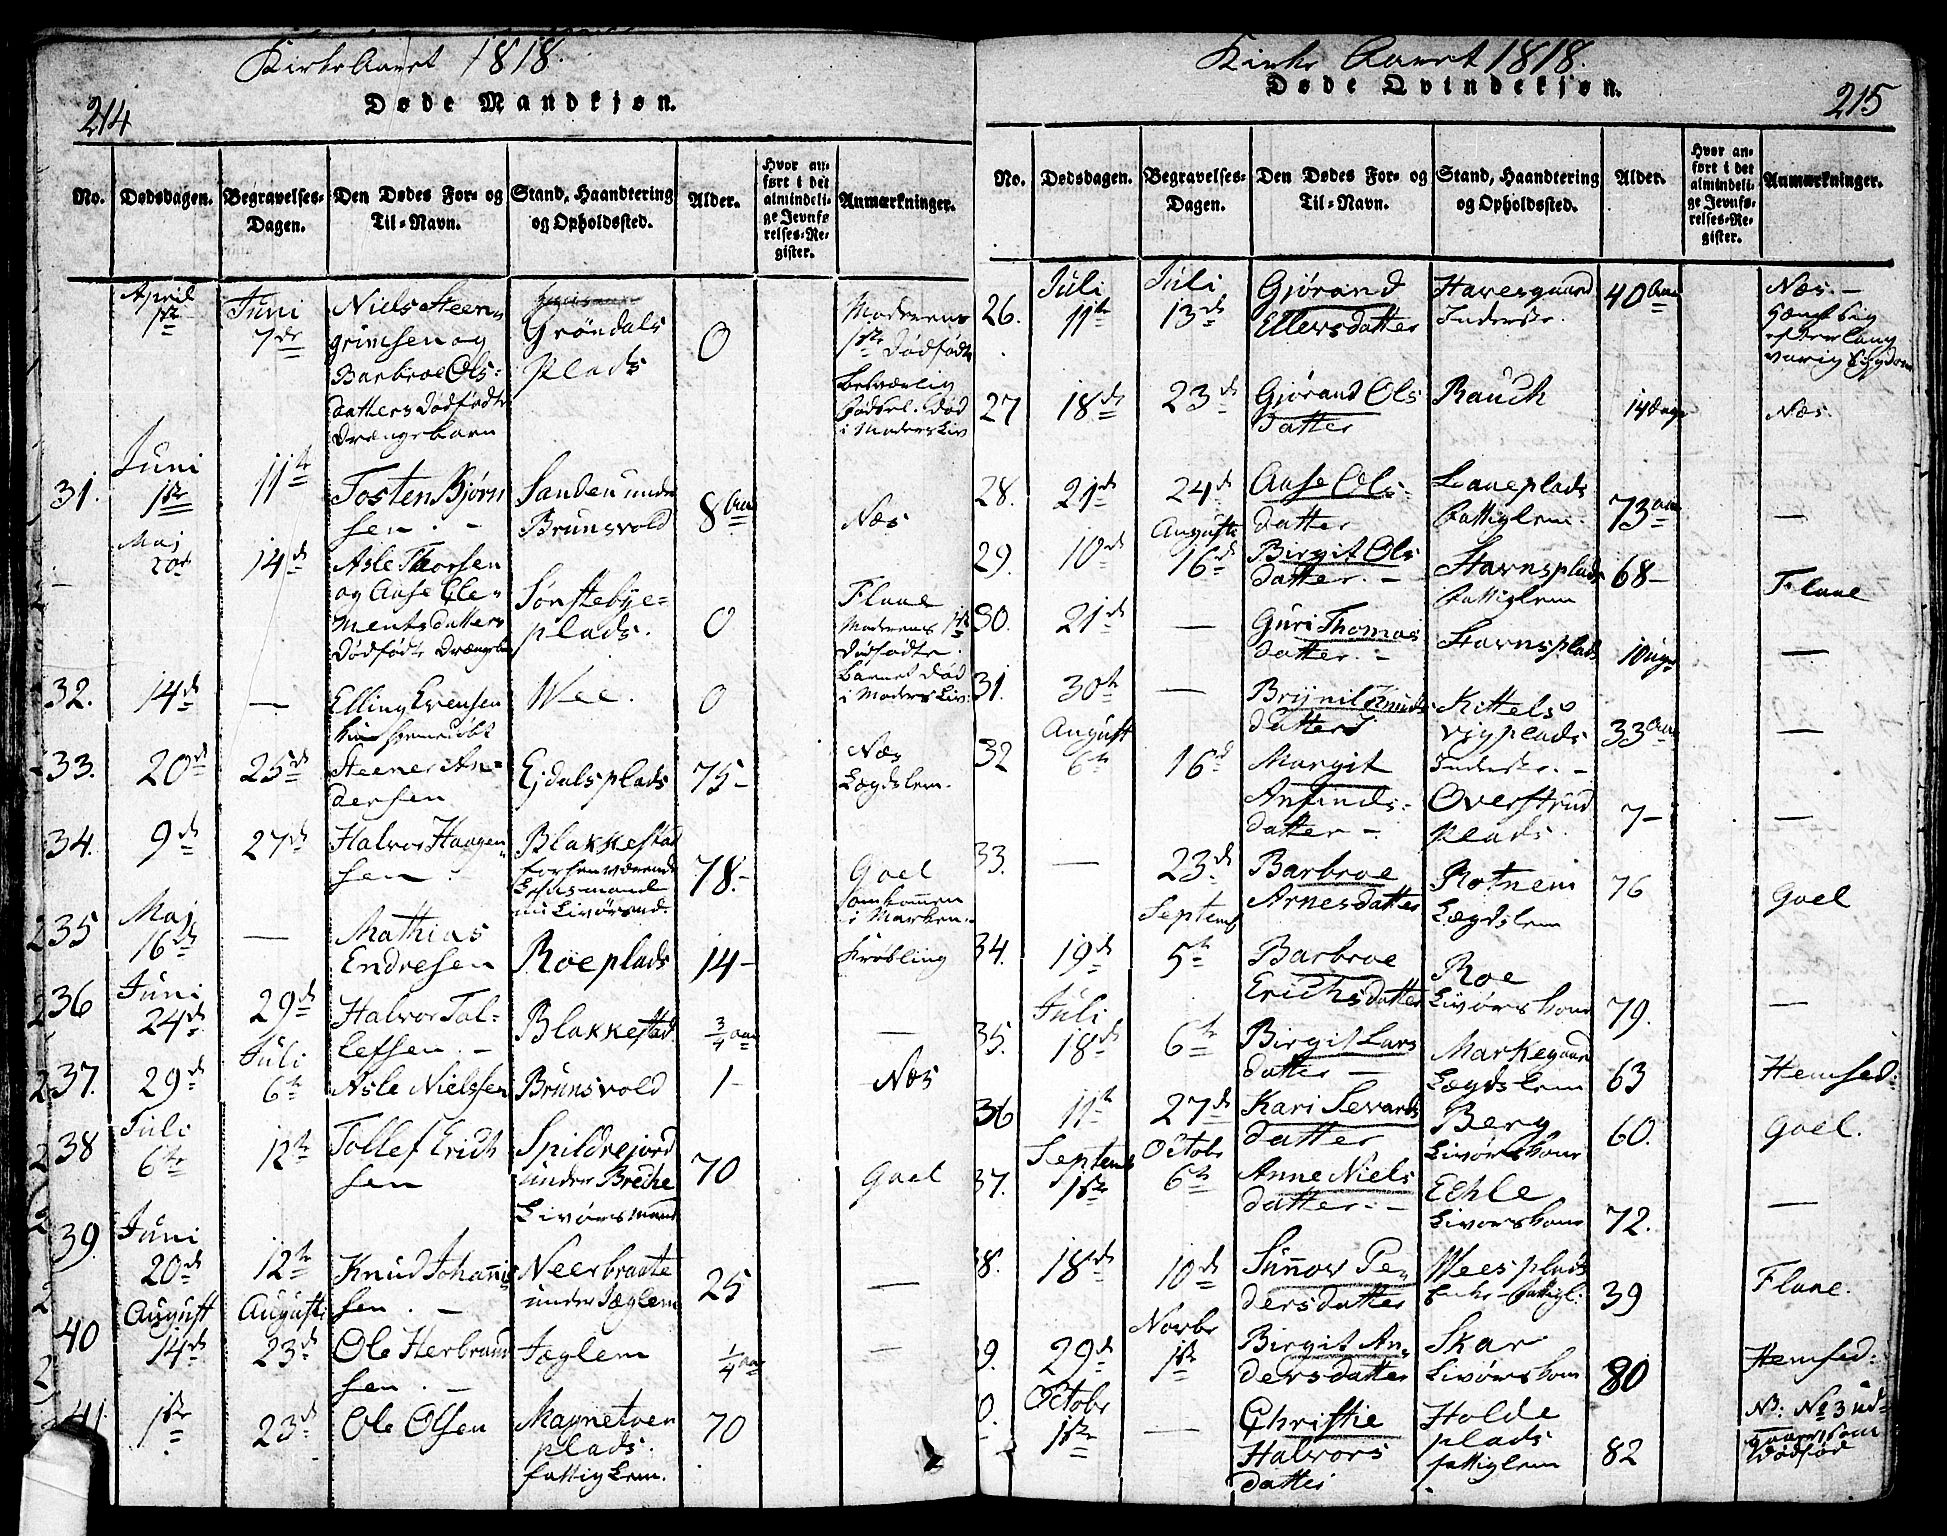 Kirke Aaret 1818.
214
Døde Mandkjøn.
No.
Dødsdagen.
Begravelses-
Dagen.
Den Dødes For- og
Til-Navn.
Stand, Haandtering
og Opholdssted.
Alder.
Hvor an-
ført i det
almindeli-
ge Jevnfø-
relses-Re-
gister.
Anmærkninger.
April
1ste
Juni
7de
Niels Steen-
grimsen og
Barbroe Ols-
datters dødfødte
Drængebarn
Grøndals
Plads
0
Moderens
1ste Dødfødte
besværlig
Fødsel. Død
i Moders Liv
31.
Juni
1ste
11te
Tosten Bjørn
sen. -
Sanden under
Brunsvold
8 Aar
Næs
Maj
20de
14de
Asle Thorsen
og Aase Cle-
mentsdatters
Dødfødte Drængeb
Sønstebye-
plads.
0
Flaae
Moderens 1ste
Dødfødte.
Barnet død
i Moders Liv.
32.
14de
—
Elling Evensen
hiemmedøbt
Wee.
0
33.
20de
25de
Steener An-
dersen
Ejdalsplads
75-
Næs
Lægdslem.
34.
9de
27de
Halvor Haagen-
sen.
Blakkestad
forhenværende
Lehnsmand
nu Livørsmd.
78.-
Goel
omkommen
i Marken.
35
Maj
16de
—
Mathias
Endresen
Roeplads
14-
Krøbling
36
Juni
24de
29de
Halvor Tol-
lefsen. -
Blakkestad
3/4 Aar
—
37.
29de
Juli
6te
Asle Nielssen
Brunsvold
1-
Næs
38
Juli
6te
12te
Tollef Erich
sen
Spildrejord
under Breche
Livørsmand
70
Goel
39.
Juni
20de
12te
Knud Johannis
sen. -
Neerbraate
under Jæglem
25
—
40
August
14de
August
23de
Ole Herbrand
sen. -
Jæglem
1/4 Aar
—
41.
1ste
23de
Ole Olsen
Magnetven
plads.
fattiglem.
70
Kirke Aaret 1818.
Døde Qvindekjøn.
215
No.
Dødsdagen.
Begravelses-
Dagen.
Den Dødes For- og
Til-Navn.
Stand, Haandtering
og Opholdssted.
Alder.
Hvor an-
ført i det
almindeli-
ge Jevnfø-
relses-Re-
gister.
Anmærkninger.
26.
Juli
11te
Juli
13de
Gjørand
Ellersdatter
Haresgaard
Inderste.
40 Aar
Næs. -
Hængt sig
efter lang
varig Sygdom
27
18de
23de
Gjørand Ols
datter
Rauch
14 dage
Næs.
28.
21de
24de
Aase Ols-
datter
Laaeplads
fattiglem.
73 Aar
—
29.
10de
August
16de
Birgit Ols
datter. -
Stavnsplads
fattiglem
68-
Flaae
30.
21de
—
Guri Thomas
datter. -
Stavnsplads
10 uger
—
31.
30te
—
Brynil Knuds
datter
Kittels
vigplads
Inderste. -
33 Aar
—
32
August
6te
16de
Margit
Anfinds-
datter -
Overstrud
plads.
7-
—
33.
—
23de
Barbroe
Arnesdatter
Rotnem
Lægdslem
76
Goel
34.
19de
Septemb
5te
Barbroe
Erichsdatter
Roe
Livørskone
79.
—
35.
Juli
18de
6te
Birgit Lars
datter -
Markegaard
Lægdslem
63
Hemsed.
36
11te
27de
Kari Sevards
datter
Berg
Livørskone
60.
Goel.
37.
Septemb
1ste
Octobr
6te
Anne Niels
datter. -
Echle
Livørskone
72.
—
38.
18de
10de
Sünnov Pe-
dersdatter
Weesplads
Enke-fattigl:
39
Flaae.
39.
29de
Novbr
1ste
Birgit An-
dersdatter
Skar
Livørskone
80
Hemsed:
0.
Octobr
1ste
—
Christie
Halvors
datter
Holde
plads
fattiglem
82
NB: No 3 ud-
gaaer som
Dødfød